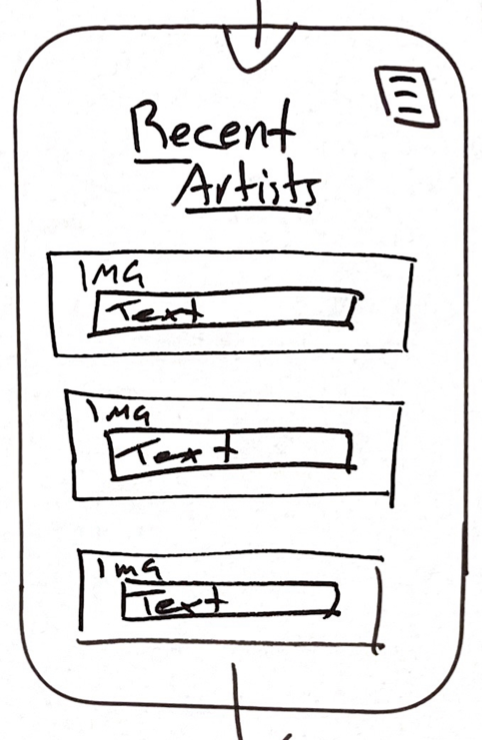 Recent
Artists
IMG
Text
IMG
Text
IMG
Text